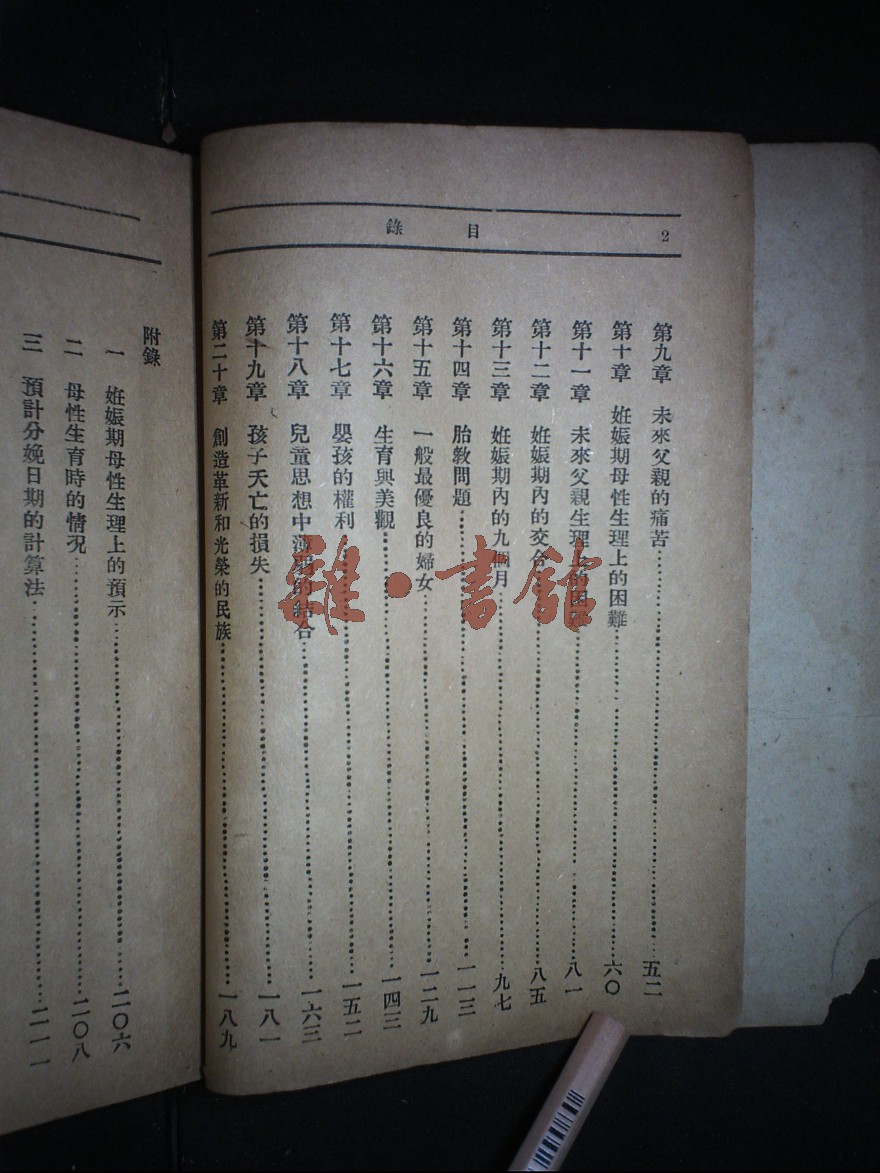 目錄
2
第九章 未來父親的痛苦……五二
第十章 妊娠期母性生理上的困難……六〇
第十一章 未來父親生理上的困難……八一
第十二章 妊娠期內的交合……八五
第十三章 妊娠期內的九個月……九七
第十四章 胎教問題……一一三
第十五章 一般最優良的婦女……一二九
第十六章 生育與美觀……一四三
第十七章 嬰孩的權利……一五二
第十八章 兒童思想中薄弱的結合……一六三
第十九章 孩子夭亡的損失……一八一
第二十章 創造革新和光榮的民族……一八九
附錄
一 妊娠期母性生理上的預示……二〇六
二 母性生育時的情況……二〇八
三 預計分娩日期的計算法……二一一
雜·書館